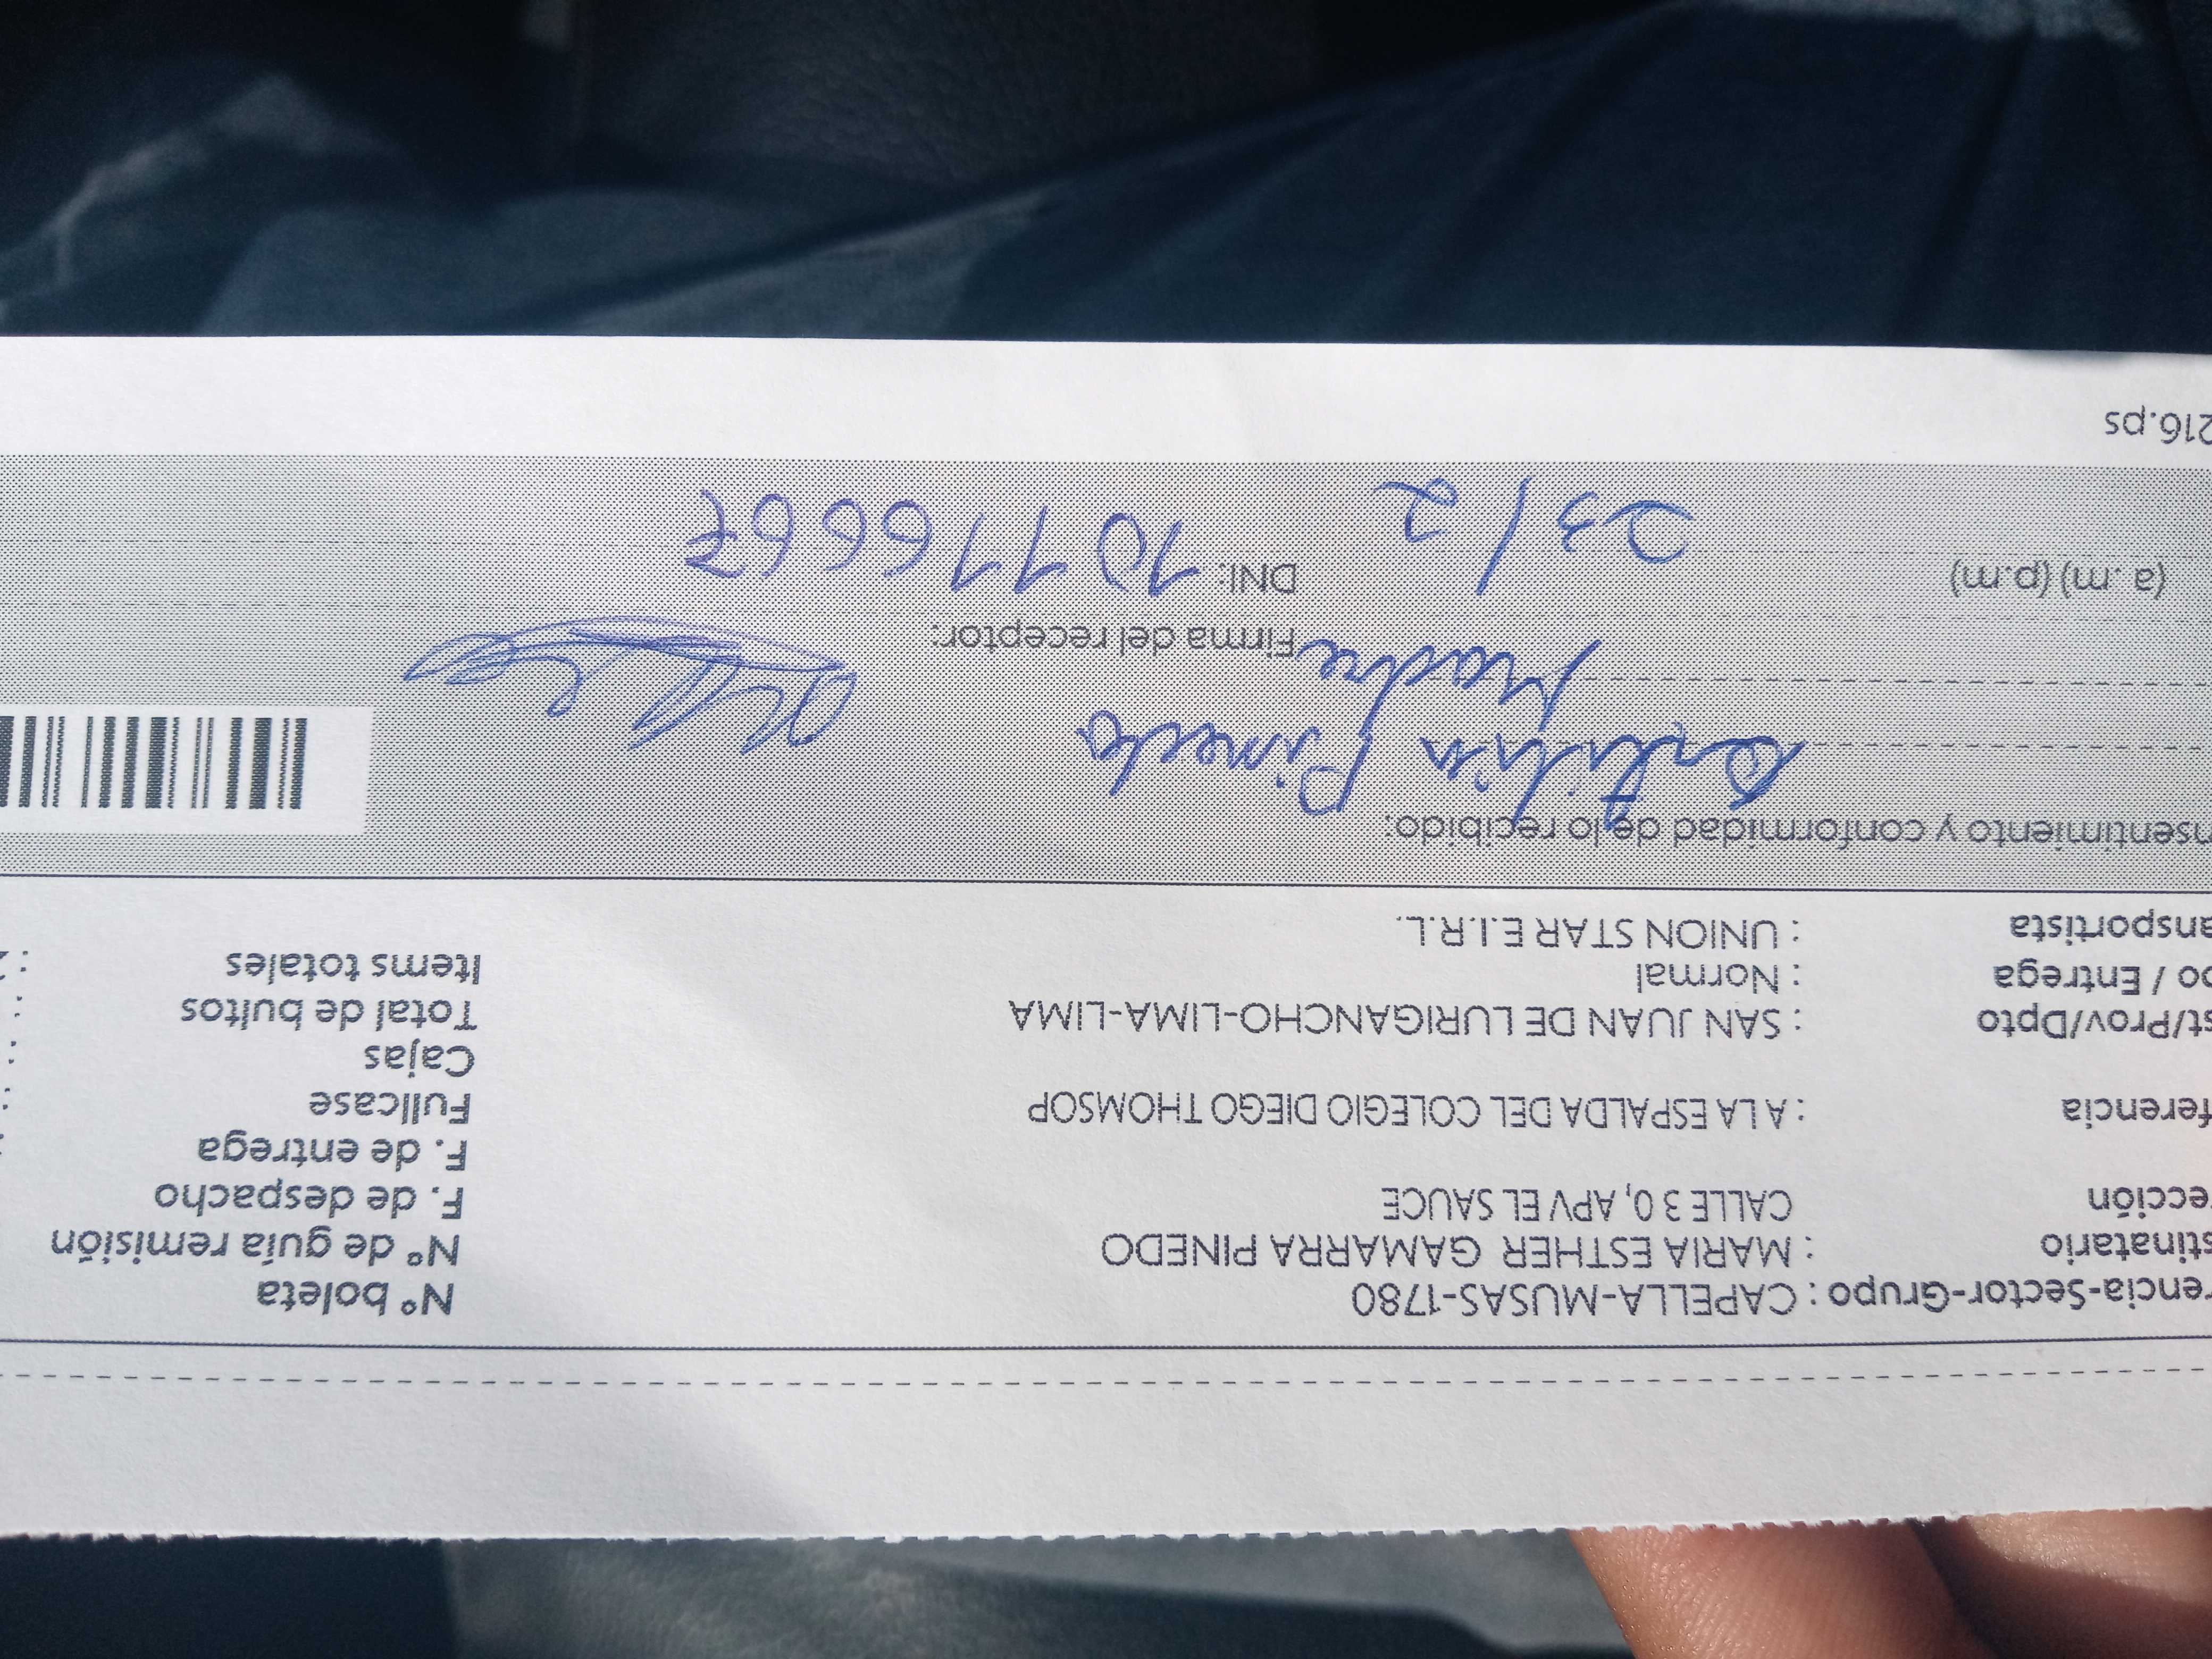 rencia-Sector-Grupo : CAPELLA-MUSAS-1780
stinatario : MARIA ESTHER GAMARRA PINEDO
ección CALLE 3 0, APV EL SAUCE
ferencia : A LA ESPALDA DEL COLEGIO DIEGO THOMSOP
st/Prov/Dpto : SAN JUAN DE LURIGANCHO-LIMA-LIMA
po / Entrega : Normal
ansportista : UNION STAR E.I.R.L.
N° boleta
N° de guía remisión
F. de despacho
F. de entrega
Fullcase :
Cajas :
Total de bultos :
Items totales :
nsentimiento y conformidad de lo recibido:
Pinedo
Madre
Firma del receptor:
(a.m) (p.m)
23/2
DNI: 10116667
216.ps